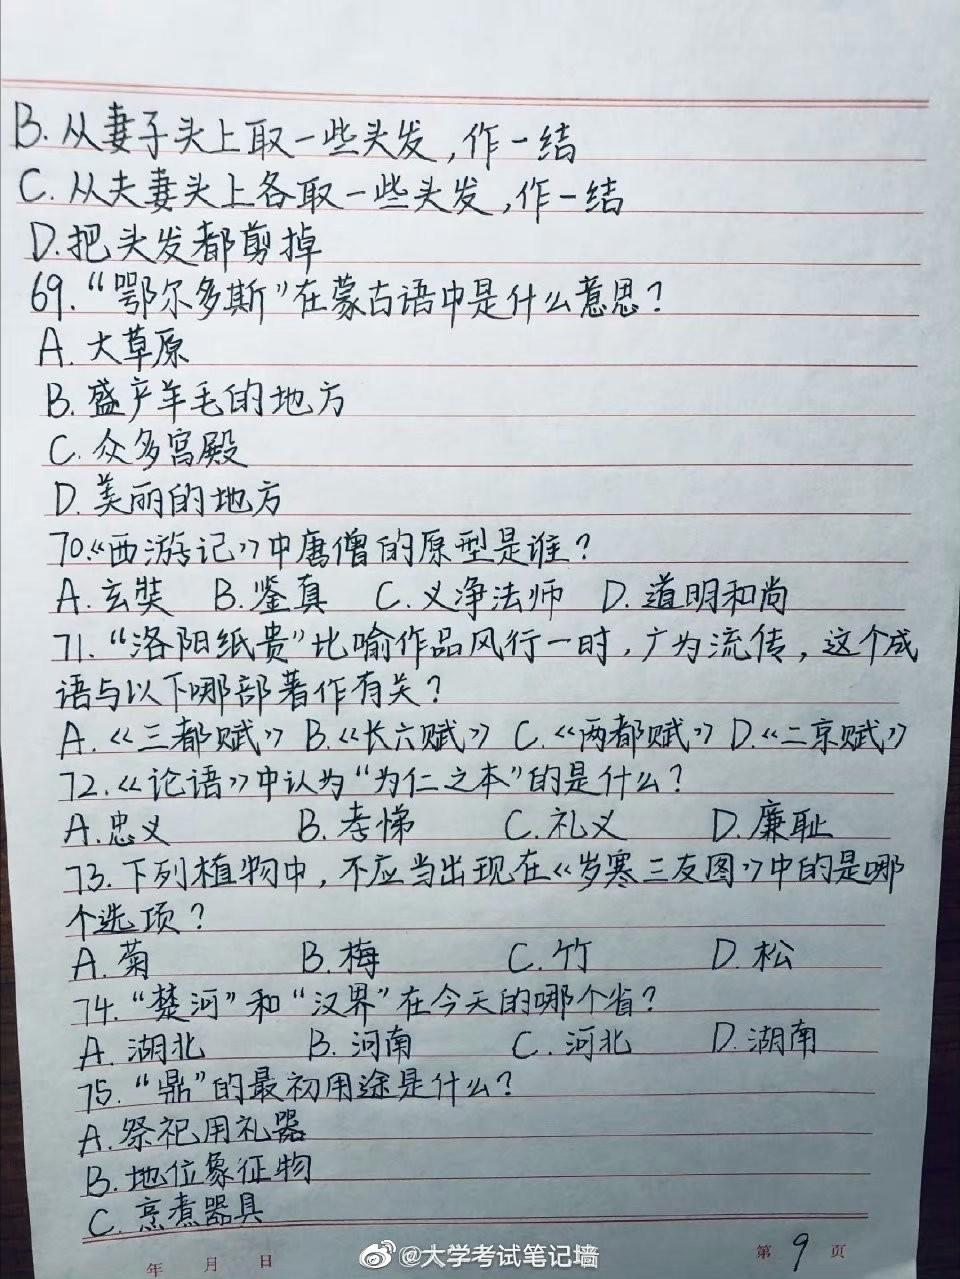 B. 从妻子头上取一些头发,作一结
C. 从夫妻头上各取一些头发,作一结
D. 把头发都剪掉
69. “鄂尔多斯”在蒙古语中是什么意思?
A. 大草原
B. 盛产羊毛的地方
C. 众多宫殿
D. 美丽的地方
70.《西游记》中唐僧的原型是谁?
A. 玄奘 B. 鉴真 C. 义净法师 D. 道明和尚
71. “洛阳纸贵”比喻作品风行一时,广为流传,这个成
语与以下哪部著作有关?
A.《三都赋》 B.《长六赋》 C.《两都赋》 D.《二京赋》
72.《论语》中认为“为仁之本”的是什么?
A. 忠义 B. 孝悌 C. 礼义 D. 廉耻
73. 下列植物中,不应当出现在《岁寒三友图》中的是哪
个选项?
A. 菊 B. 梅 C. 竹 D. 松
74. “楚河”和“汉界”在今天的哪个省?
A. 湖北 B. 河南 C. 河北 D. 湖南
75. “鼎”的最初用途是什么?
A. 祭祀用礼器
B. 地位象征物
C. 烹煮器具
年 月 日 @大学考试笔记墙 第 9 页